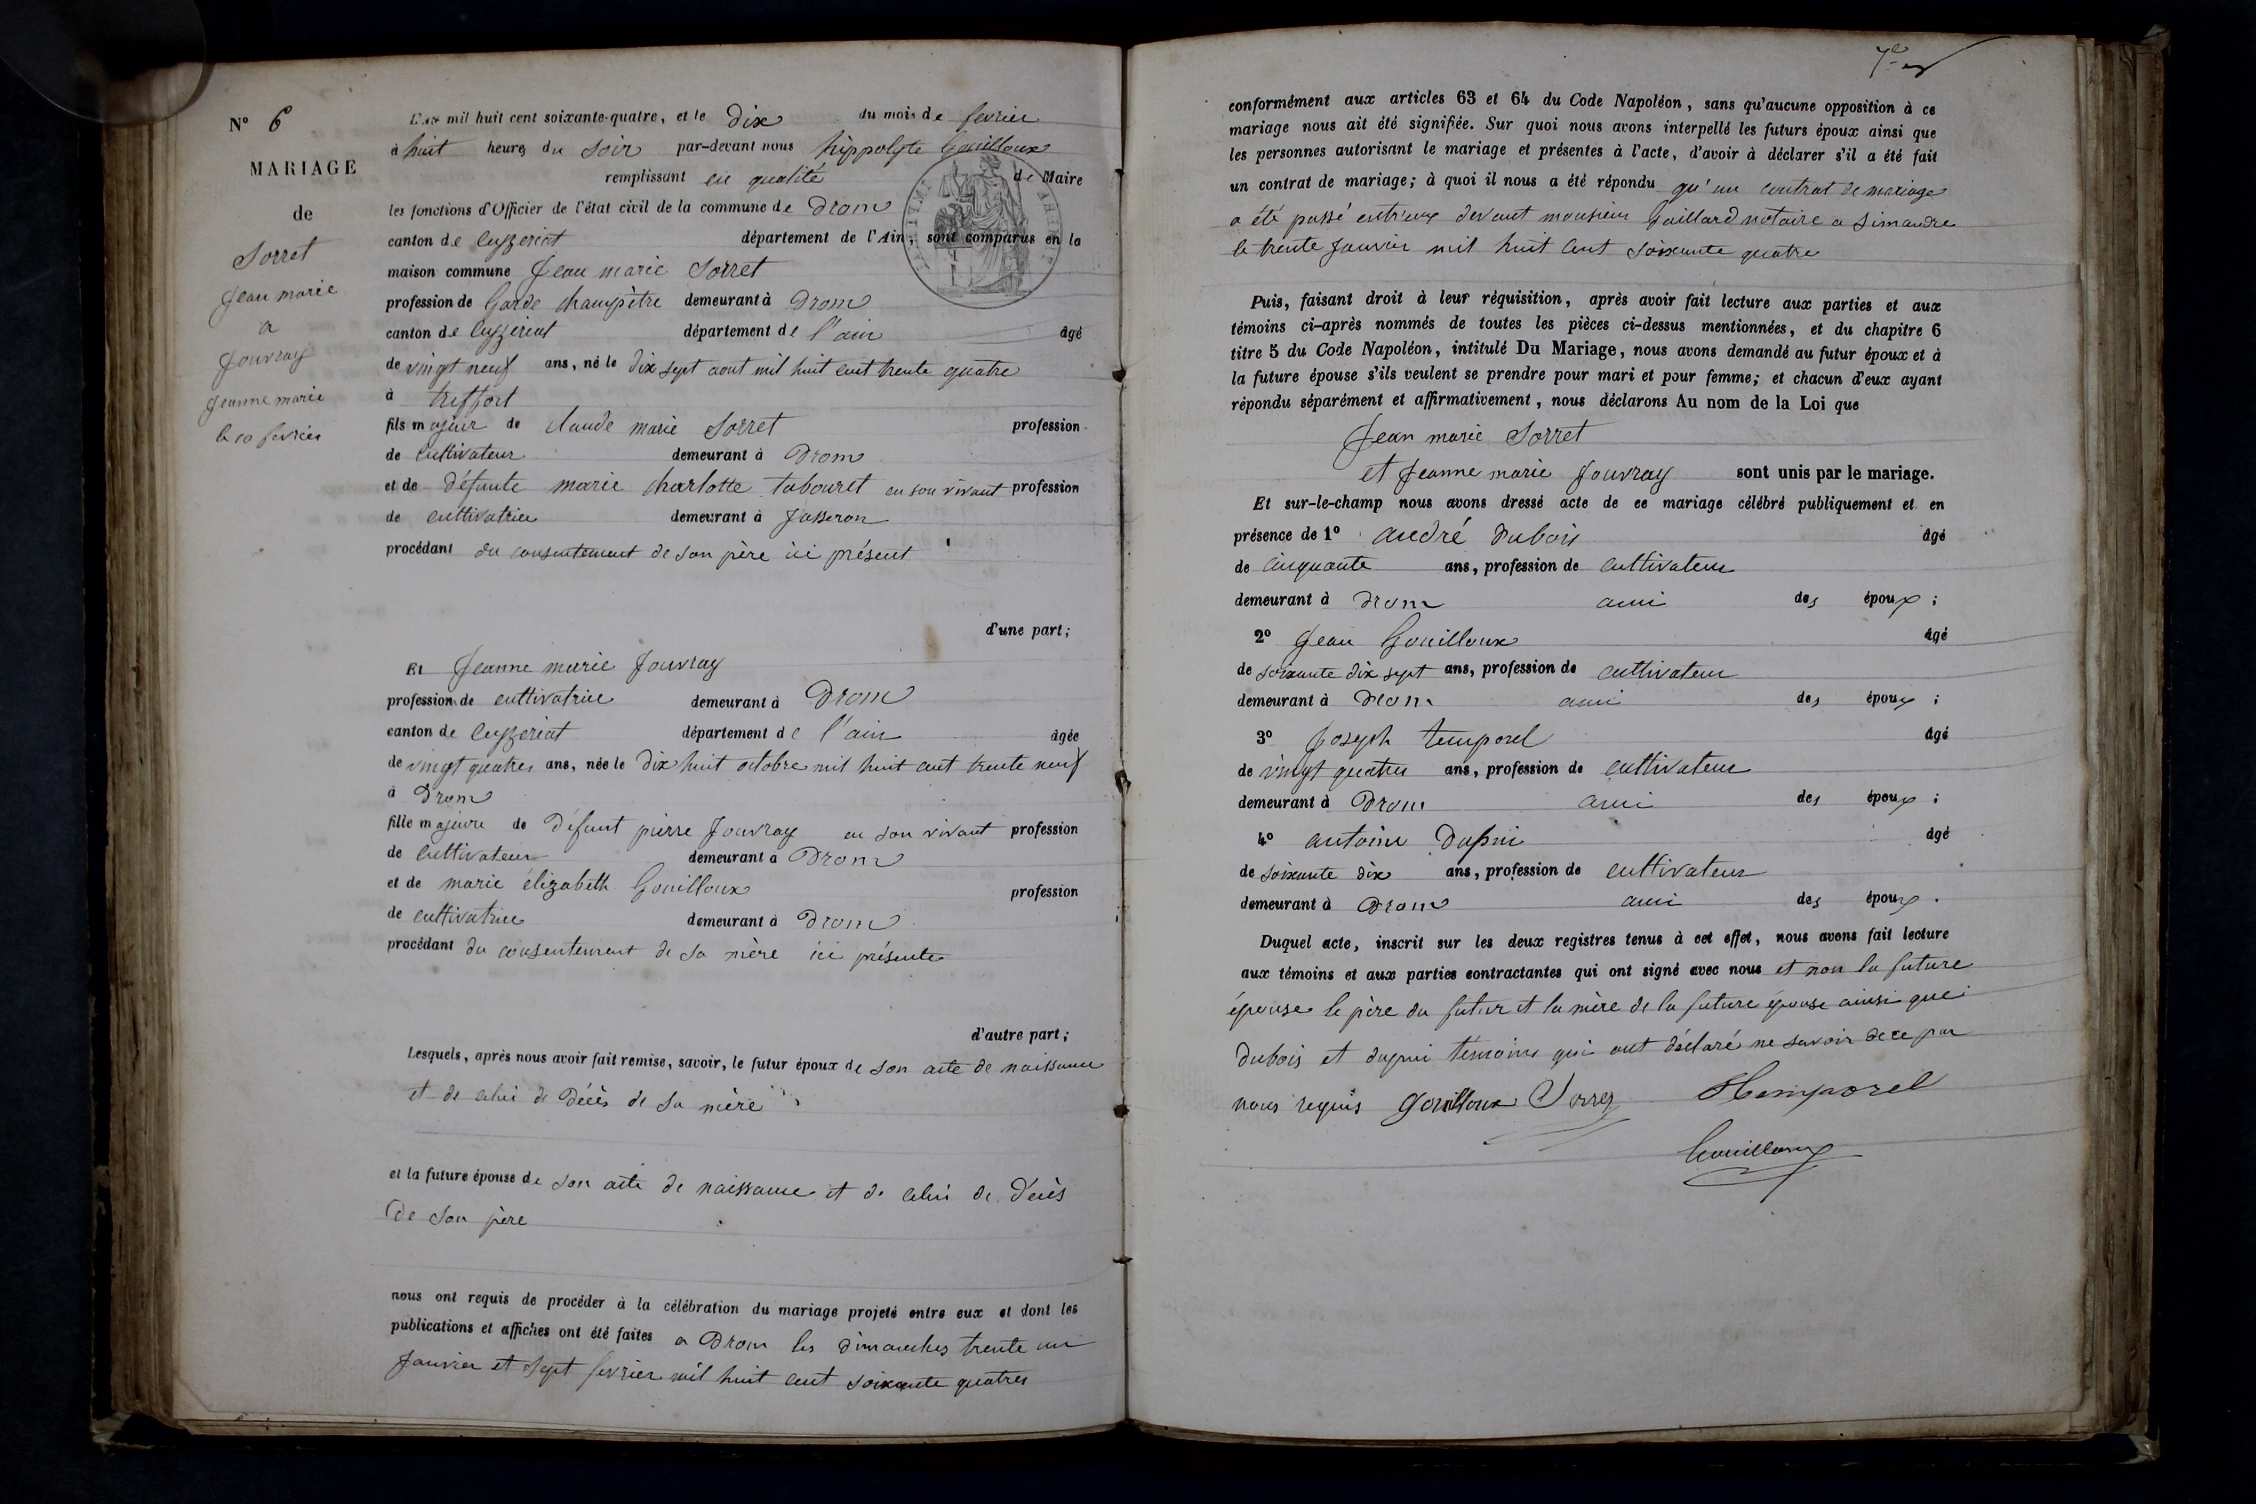 N° 6
MARIAGE
de
Sorret
Jean marie
a
Jouvray
Jeanne marie
le 10 fevrier
L'an mil huit cent soixante-quatre, et le dix du mois de fevrier
à huit heures du soir par-devant nous hippolyte Gouilloux
remplissant en qualité de Maire
les fonctions d'Officier de l'état civil de la commune de Drom
canton de Ceyzeriat département de l'Ain, sont comparus en la
maison commune Jean marie Sorret
profession de Garde champètre demeurant à Drom
canton de Ceyzeriat département de l'ain âgé
de vingt neuf ans, né le dix sept aout mil huit cent trente quatre
à treffort
fils majeur de claude marie Sorret profession
de Cultivateur demeurant à Drom
et de défunte marie charlotte tabouret en son vivant profession
de cultivatrice demeurant à Jasseron
procédant du consentement de son père ici présent
d'une part;
Et Jeanne marie Jouvray
profession de cultivatrice demeurant à Drom
canton de Ceyzeriat département de l'ain âgée
de vingt quatres ans, née le dix huit octobre mil huit cent trente neuf
à Drom
fille majeure de défunt pierre Jouvray en son vivant profession
de Cultivateur demeurant à Drom
et de marie élizabeth Gouilloux profession
de cultivatrice demeurant à Drom
procédant du consentement de sa mère ici présente
d'autre part;
Lesquels, après nous avoir fait remise, savoir, le futur époux de son acte de naissance
et de celui de décès de sa mère
et la future épouse de son acte de naissance et de celui de décès
de son père
nous ont requis de procéder à la célébration du mariage projeté entre eux et dont les
publications et affiches ont été faites a Drom les dimanches trente un
Janvier et sept fevrier mil huit cent soixante quatres
7e
conformément aux articles 63 et 64 du Code Napoléon, sans qu'aucune opposition à ce
mariage nous ait été signifiée. Sur quoi nous avons interpellé les futurs époux ainsi que
les personnes autorisant le mariage et présentes à l'acte, d'avoir à déclarer s'il a été fait
un contrat de mariage; à quoi il nous a été répondu qu'un contrat de mariage
a été passé entreux devant monsieur Gaillard notaire a Simandre
le trente Janvier mil huit cent soixante quatre
Puis, faisant droit à leur réquisition, après avoir fait lecture aux parties et aux
témoins ci-après nommés de toutes les pièces ci-dessus mentionnées, et du chapitre 6
titre 5 du Code Napoléon, intitulé Du Mariage, nous avons demandé au futur époux et à
la future épouse s'ils veulent se prendre pour mari et pour femme; et chacun d'eux ayant
répondu séparément et affirmativement, nous déclarons Au nom de la Loi que
Jean marie Sorret
et Jeanne marie Jouvray sont unis par le mariage.
Et sur-le-champ nous avons dressé acte de ce mariage célébré publiquement et en
présence de 1° andré Dubois âgé
de cinquante ans, profession de cultivateur
demeurant à Drom ami des époux;
2° Jean Gouilloux âgé
de soixante dix sept ans, profession de cultivateur
demeurant à Drom ami des époux;
3° Joseph temporel âgé
de vingt quatres ans, profession de cultivateur
demeurant à Drom ami des époux;
4° antoine Dupui âgé
de soixante dix ans, profession de cultivateur
demeurant à Drom ami des époux.
Duquel acte, inscrit sur les deux registres tenus à cet effet, nous avons fait lecture
aux témoins et aux parties contractantes qui ont signé avec nous et non la future
épouse le père du futur et la mère de la future épouse ainsi que
dubois et dupui témoins qui ont déclaré ne savoir de ce par
nous requis Gouilloux Sorret Temporel
Gouilloux